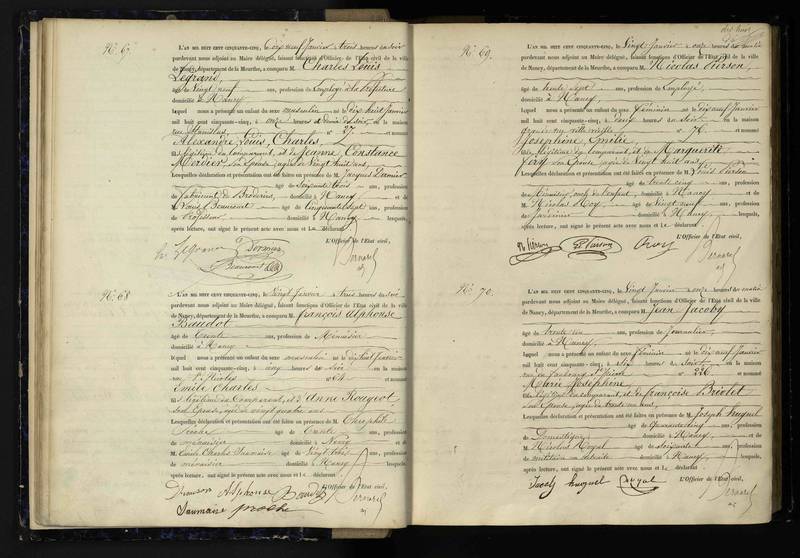 N° 67
L'AN MIL HUIT CENT CINQUANTE-CINQ, le Dix neuf Janvier à trois heures du soir
pardevant nous adjoint au Maire délégué, faisant fonctions d'Officier de l'Etat civil de la ville
de Nancy, département de la Meurthe, a comparu M. Charles Louis
Legrand,
âgé de Vingt neuf ans, profession de Employé à la Préfecture
domicilié à Nancy
lequel nous a présenté un enfant du sexe masculin né le Dix huit Janvier
mil huit cent cinquante-cinq, à onze heures et demie du soir, en la maison
rue Stanislas, n° 27. et nommé
Alexandre, Louis, Charles,
fils légitime du comparant, et de Jeanne Constance
son Epouse, âgée de Vingt huit ans,
Lesquelles déclaration et présentation ont été faites en présence de M. Jacques
âgé de Soixante trois ans, profession
de fabricant de Broderies, domicilié à Nancy et
de Louis Beaumont âgé de Cinquante sept ans, profession
de Professeur domicilié à Nancy lesquels,
après lecture, ont signé le présent acte avec nous et le déclarant
L'Officier de l'Etat civil,
N° 68
L'AN MIL HUIT CENT CINQUANTE-CINQ, le Vingt Janvier à trois heures du soir
pardevant nous adjoint au Maire délégué, faisant fonctions d'Officier de l'Etat civil de la ville
de Nancy, département de la Meurthe, a comparu M. François Alphonse
Baudot
âgé de Trente ans, profession de Menuisier
domicilié à Nancy
lequel nous a présenté un enfant du sexe masculin né le dix huit Janvier
mil huit cent cinquante-cinq, à cinq heures du soir en la maison
rue St Nicolas n° 64 et nommé
Emile Charles
fils légitime du Comparant, et d'Anne Rougiot
son Epouse, âgée de vingt quatre ans
Lesquelles déclaration et présentation ont été faites en présence de M. Théophile
âgé de Trente ans, profession
de menuisier domicilié à Nancy et de
M. Emile Charles âgé de Vingt trois ans, profession
de menuisier domicilié à Nancy lesquels,
après lecture, ont signé le présent acte avec nous et le déclarant
L'Officier de l'Etat civil,
N° 69
L'AN MIL HUIT CENT CINQUANTE-CINQ, le Vingt Janvier à onze heures du matin
pardevant nous adjoint au Maire délégué, faisant fonctions d'Officier de l'Etat civil de la ville
de Nancy, département de la Meurthe, a comparu M. Nicolas Pierson,
âgé de trente sept ans, profession de Employé,
domicilié à Nancy,
lequel nous a présenté un enfant du sexe féminin né le Dix neuf Janvier
mil huit cent cinquante-cinq, à cinq heures du soir en la maison
grande rue ville vieille n° 76 et nommé
Joséphine, Emilie,
fille légitime du comparant, et de Marguerite
son Epouse, âgée de Vingt huit ans,
Lesquelles déclaration et présentation ont été faites en présence de M. Louis Pierson
âgé de trente cinq ans, profession
de oncle de l'enfant, domicilié à Nancy et de
M. Nicolas Roy, âgé de Vingt neuf ans, profession
de Jardinier domicilié à Nancy, lesquels,
après lecture, ont signé le présent acte avec nous et le déclarant
L'Officier de l'Etat civil,
N° 70
L'AN MIL HUIT CENT CINQUANTE-CINQ, le Vingt Janvier à onze heures du matin
pardevant nous adjoint au Maire délégué, faisant fonctions d'Officier de l'Etat civil de la ville
de Nancy, département de la Meurthe, a comparu M. Jean Jacoby
âgé de trente un ans, profession de Journalier,
domicilié à Nancy,
lequel nous a présenté un enfant du sexe féminin né le dix neuf Janvier
mil huit cent cinquante-cinq, à six heures du soir en la maison
rue du faubourg St Pierre n° 226 et nommé
Marie Joséphine,
fille légitime du comparant, et de françoise Briolet
son Epouse, âgée de trente un ans,
Lesquelles déclaration et présentation ont été faites en présence de M. Joseph huguel
âgé de Quarante cinq ans, profession
de Domestique, domicilié à Nancy et de
M. Nicolas Noyal âgé de Soixante ans, profession
de militaire en retraite domicilié à Nancy, lesquels,
après lecture, ont signé le présent acte avec nous et le déclarant
L'Officier de l'Etat civil,
Jacoby huguel